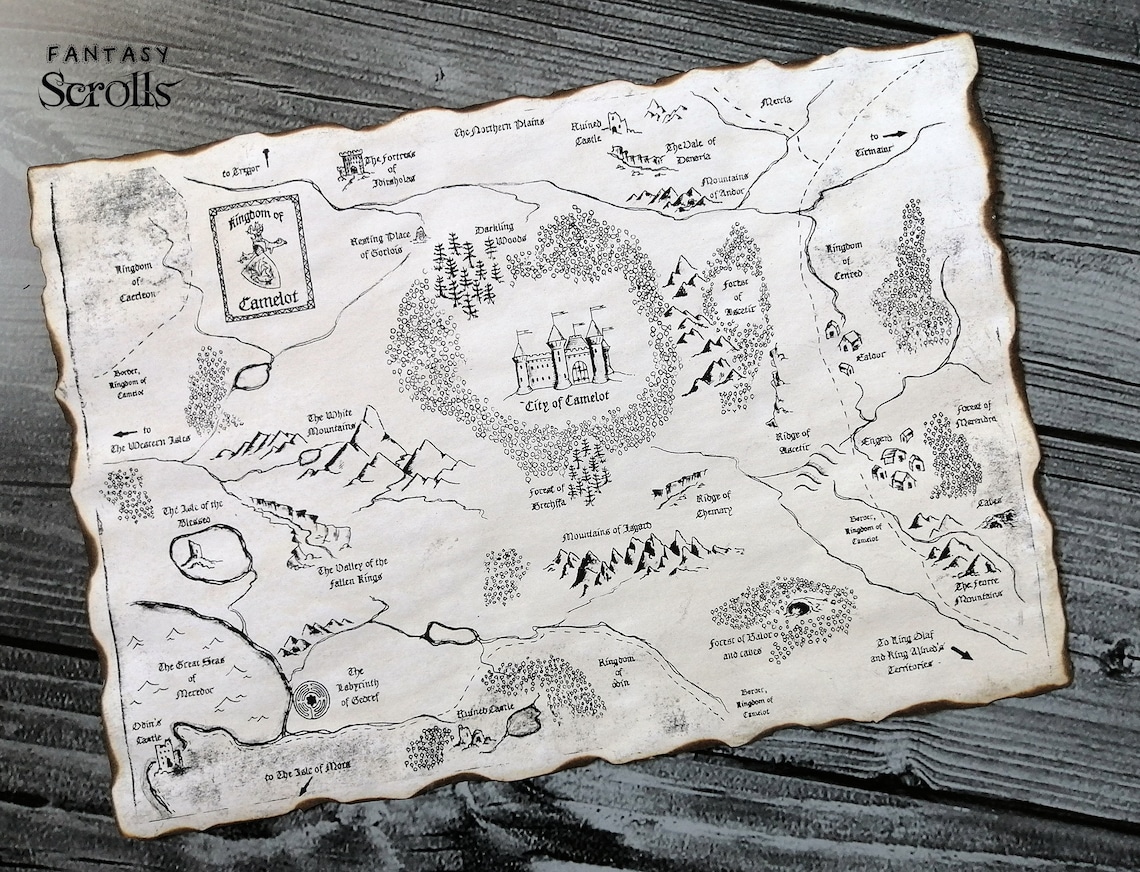 FANTASY
Scrolls
The Northern Plains
Ruined
Castle
Mercia
to
The Vale of
Denaria
Mountains
of Andor
The Fortress
of
Idirsholas
Kingdom of
Camelot
Resting Place
of Gorlois
Darkling
Woods
Kingdom
of
Caerleon
Kingdom
of
Cenred
Forest
of
Ascetir
City of Camelot
Ealdor
Border,
Kingdom of
Camelot
to
The Western Isles
The White
Mountains
Ridge of
Ascetir
Engerd
Forest of
Merendra
The Isle of the
Blessed
Forest of
Brechfa
Ridge of
Chemary
Caves
Border,
Kingdom of
Camelot
Mountains of Isgard
The Valley of the
Fallen Kings
The Feorre
Mountains
The Great Seas
of
Meredor
The
Labyrinth
of Gedref
Kingdom
of
Odin
Forest of Balor
and caves
To King Olaf
and King Alined's
Territories
Border,
Kingdom of
Camelot
Odin's
Castle
Ruined Castle
to The Isle of Mora